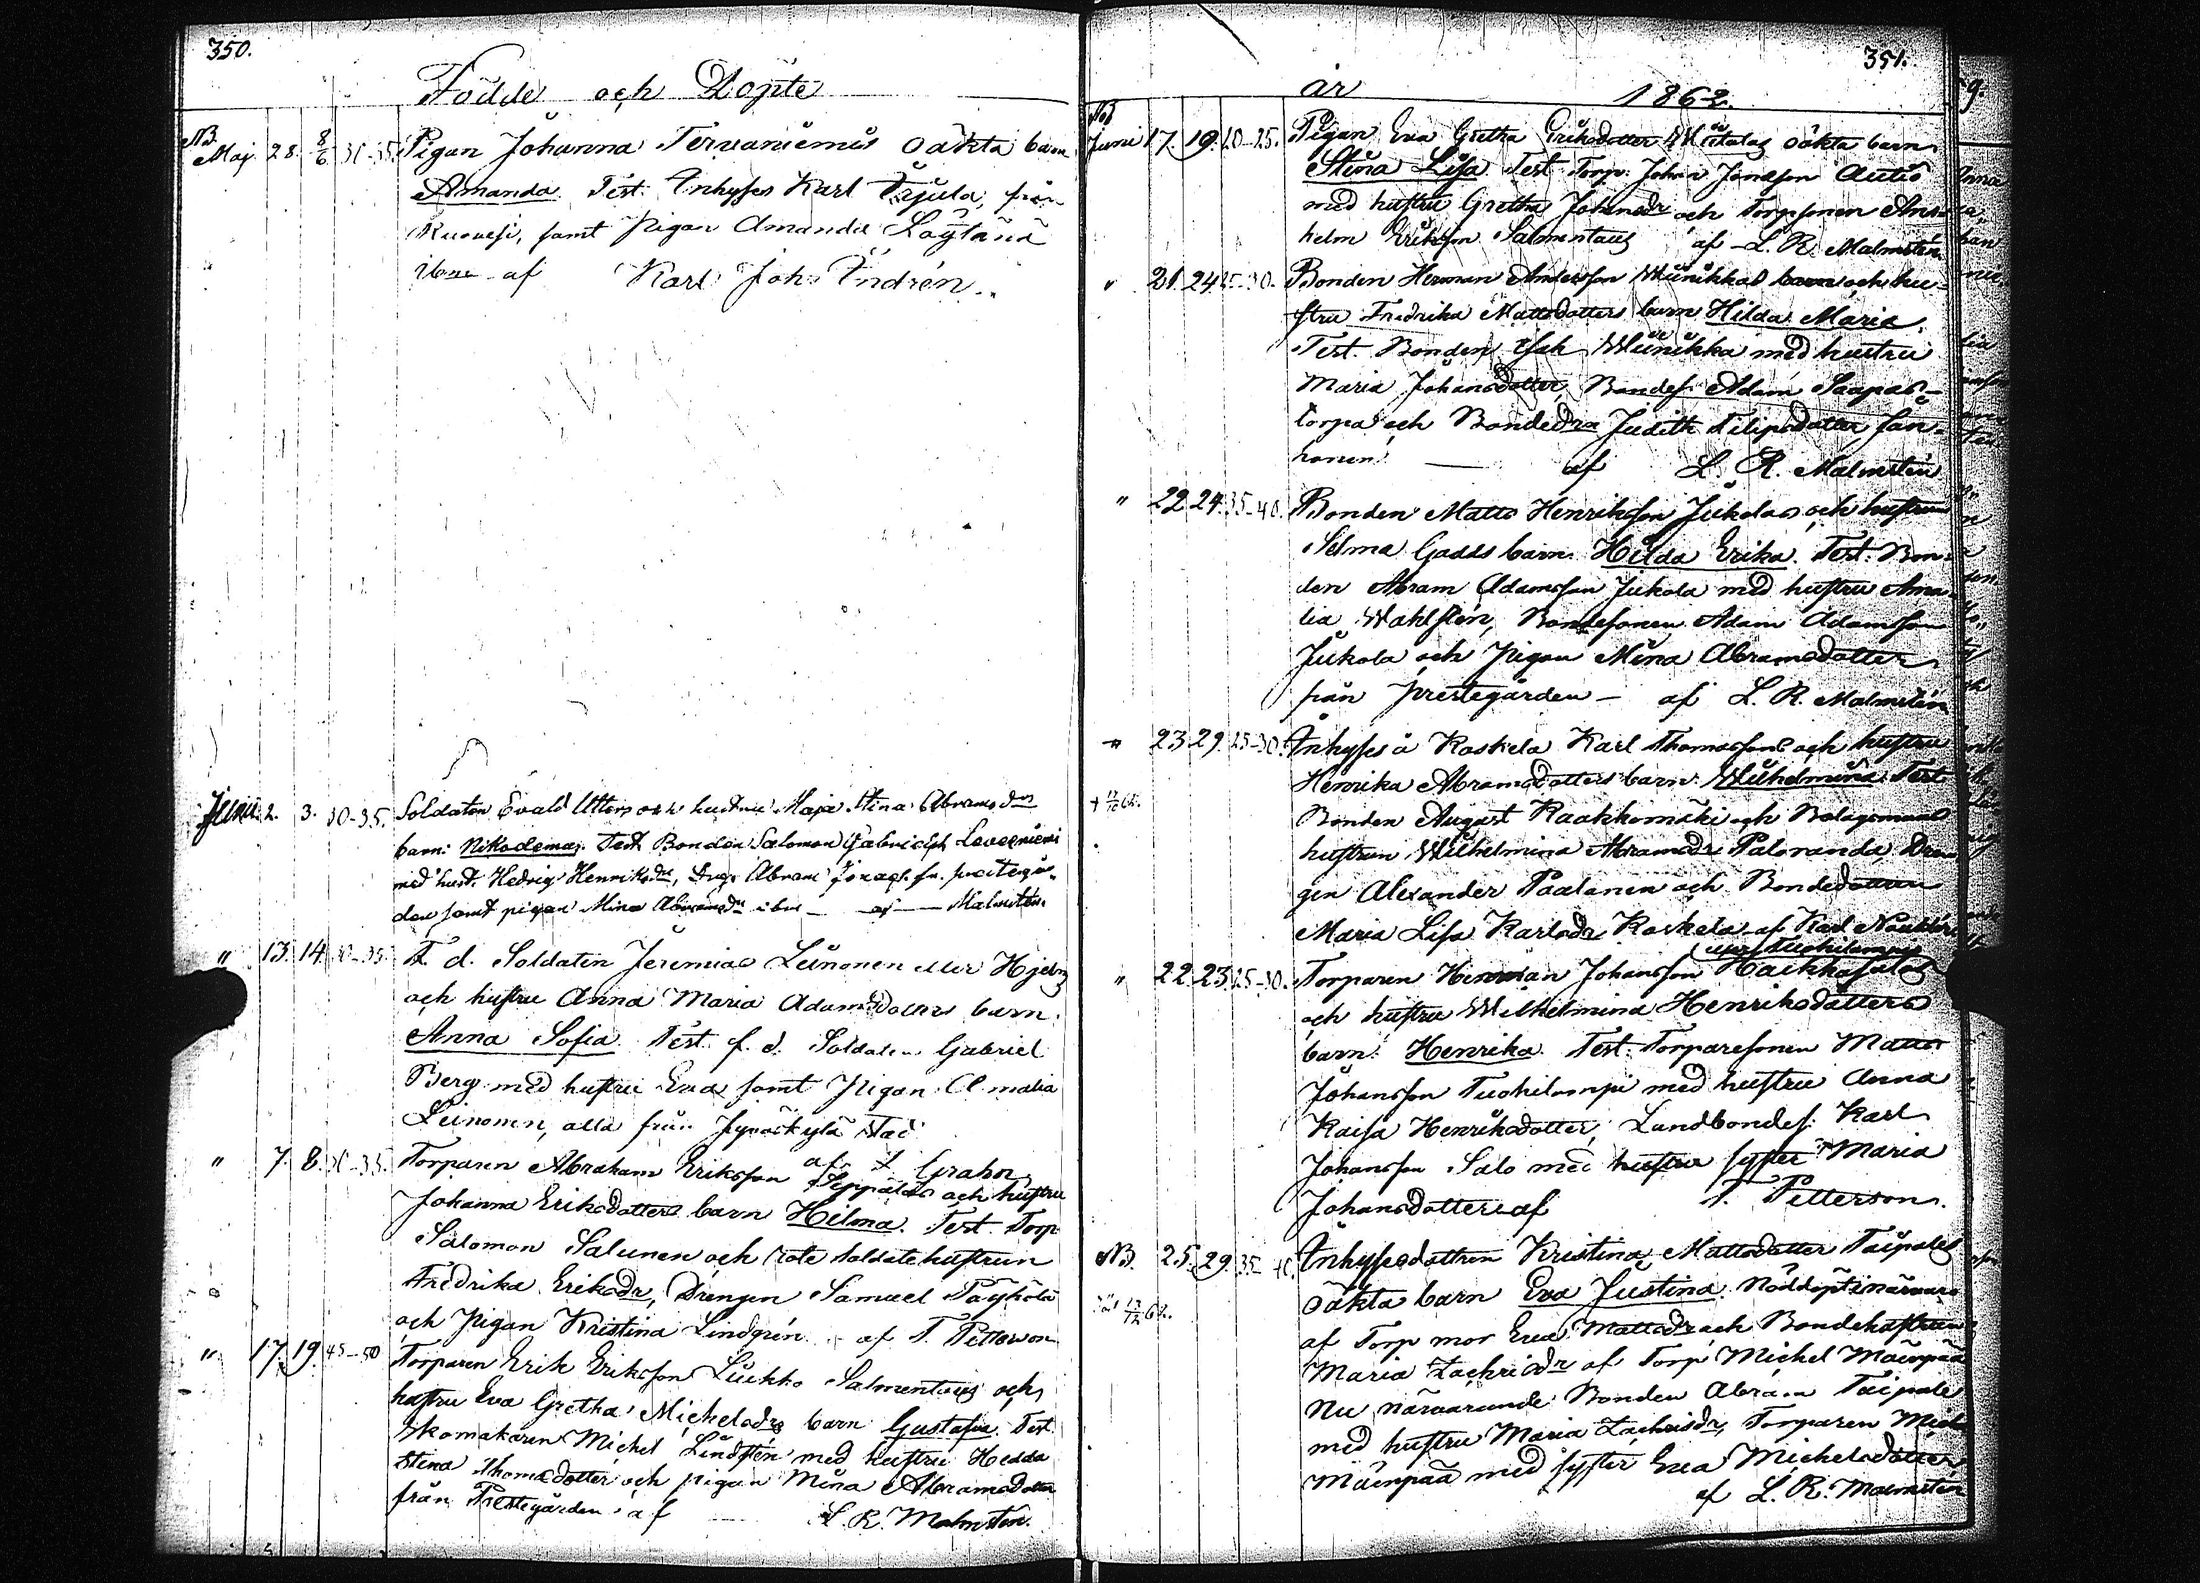 350.
Födde och Döpte
NB Maj 28. 8/6 30-35. Pigan Johanna Tervaniemis oäkta barn
Amanda. Test. Inhyses Karl från
Ruovesi, samt Pigan Amanda Löytänä
ibm af Karl Joh. Indrén.
Juni 2. 3. 30-35. Soldaten Evald Utters och hustru Maja Stina Abramsdrs
barn: Nikodemus. Test. Bonden Salomon
med hust. Hedvig Henriksdr, Abram fr. prestegår-
den samt pigan Mina Abramsdr ibm — af — Malmstén.
" 13. 14. 30-35. F. d. Soldaten Jeremias Leinonen eller Hjelm
och hustru Anna Maria Adamsdotters barn
Anna Sofia. Test. f. d. Soldaten Gabriel
Berg med hustru Eva samt Pigan Amalia
Leinonen, alla från Jyväskylä Stad
af Grahn
" 7. 8. 30-35. Torparen Abraham Eriksson Seppäläs och hustru
Johanna Eriksdotters barn Hilma. Test. Torp.
Salomon Salunen och rote soldatehustrun
Fredrika Eriksdr, Drengen Samuel
och Pigan Kristina Lindgrén. af T. Petterson
" 17. 19. 45-50 Torparen Erik Eriksson Liukko Salmentaus och
hustru Eva Gretha Michelsdrs barn Gustafva. Test.
Skomakaren Michel Lindstén med hustru Hedda
Stina Thomasdotter och pigan Mina Abramsdotter
från Prestegården af L. R. Malmstén.
351.
år 1862.
NB
Juni 17. 19. 20-25. Pigan Eva Gretha Eriksdotter oäkta barn
Stina Lisa. Test. Torp. Johan Jonasson Autio
med hustru Gretha Johansdr och Torpsonen Ans-
helm Eriksson Salmentaus af L. R. Malmstén.
" 21. 24. 25-30. Bonden Herman Andersson Wiinikkas och hu-
stru Fredrika Mattsdotters barn Hilda Maria.
Test. Bonden Isak Wiinikka med hustru
Maria Johansdotter, Bondes. Adam Saapas-
torpa och Bondedra Judith Filipsdotter Jan-
honen. — af L. R. Malmstén
" 22. 24. 35-40. Bonden Matts Henriksson Jukolas och hustru
Selma Gadds barn Hilda Erika. Test. Bon-
den Abram Adamsson Jukola med hustru Ama-
lia Wahlstén, Bondesonen Adam Adamsson
Jukola och Pigan Mina Abramsdotter
från prestegården — af L. R. Malmstén
" 23. 29. 25-30. Inhyses å Koskela Karl Thomassons och hustru
Henrika Abramsdotters barn Wilhelmina. Test.
Bonden August Raakkomäki och Bolagsmans
hustrun Wilhelmina Abramsdr Paloranda, Dren-
gen Alexander Paalanen och Bondedottren
Maria Lisa Karlsdr Koskela af Karl
" 22. 23. 25-30. Torparen Herman Johansson
och hustru Wilhelmina Henriksdotters
barn: Henrika. Test. Torparesonen Matts
Johansson Tuohilampi med hustru Anna
Kaisa Henriksdotter, Landbondes. Karl
Johansson Salo med hustru syster Maria
Johansdotter af T. Petterson.
NB. 25. 29. 35-40. Inhysesdottren Kristina Mattsdotter Taipales
oäkta barn Eva Justina. Nöddöpt i närvaro
af Torp mor Eva Mattsdr och Bondehustrun
Maria Zachrisdr af Torp Michel Mäenpää
Nu närvarande Bonden Abram Taipale
med hustru Maria Zachrisdr, Torparen Michel
Mäenpää med syster Eva Michelsdotter
af L. R. Malmstén